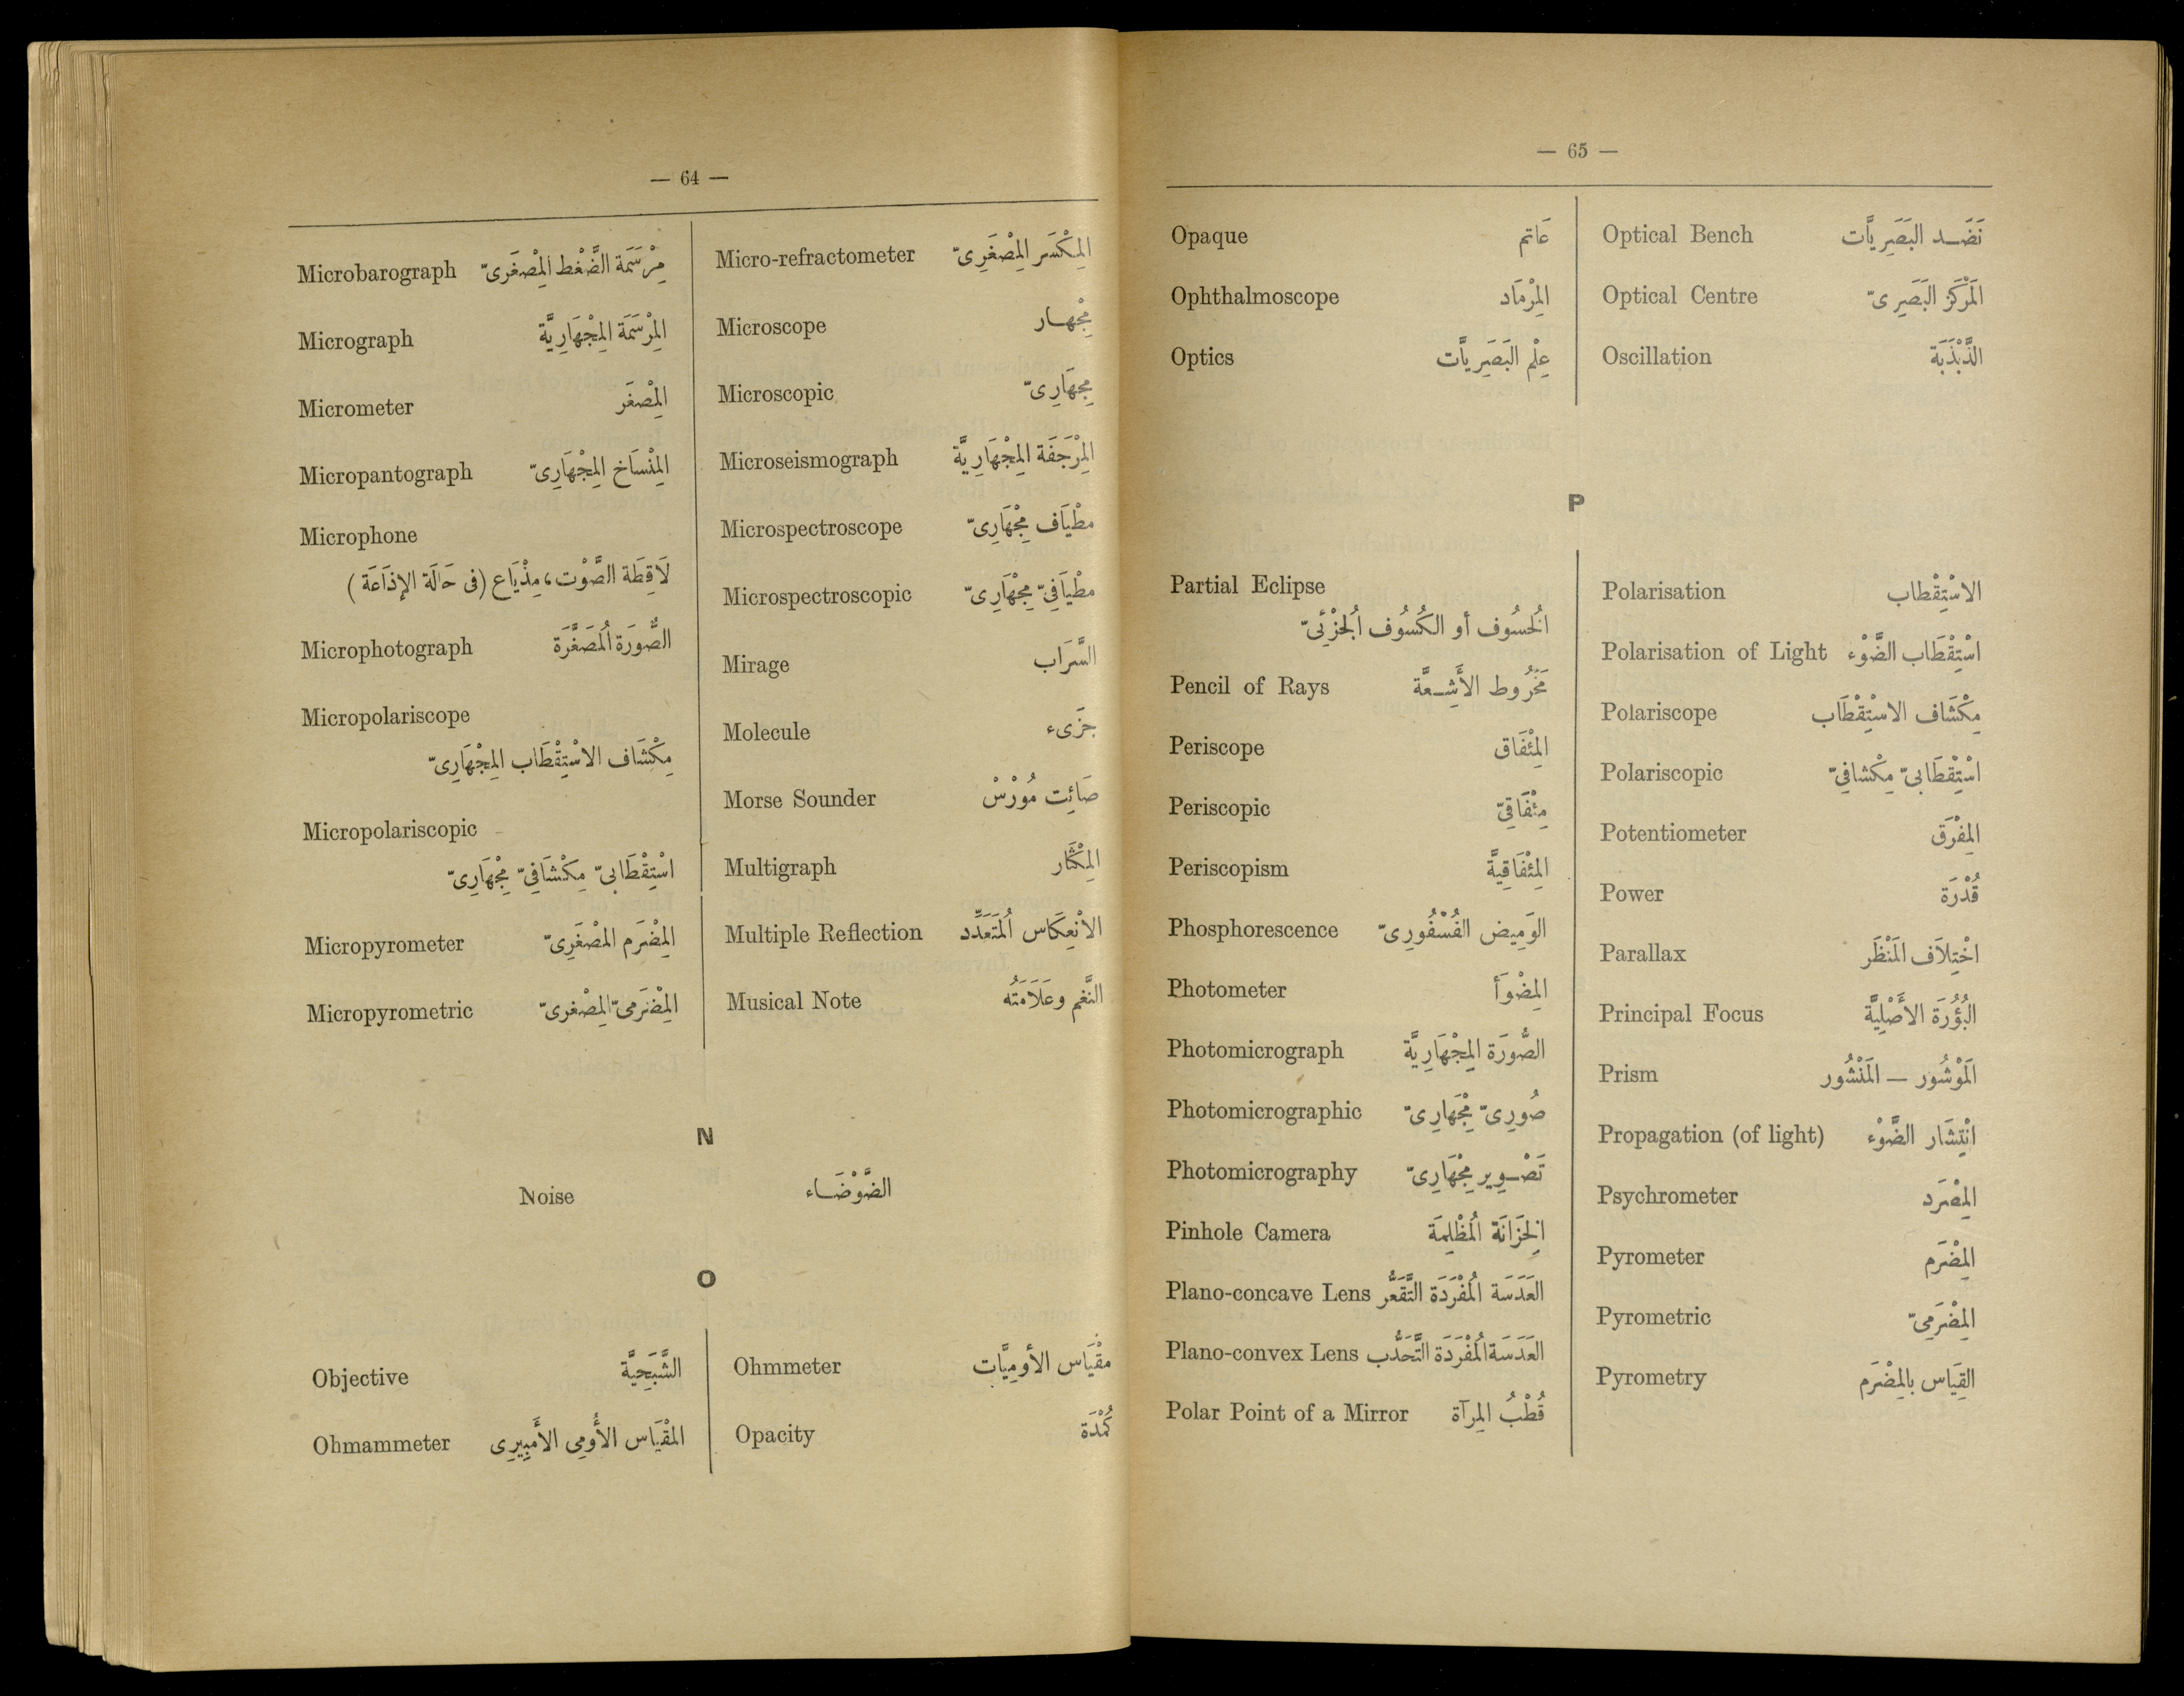 — 64 —
Microbarograph مِرْسَمَة الضَّغْط المِصْغَرِىّ
Micrograph المِرْسَمَة المِجْهَارِيَّة
Micrometer المِصْغَر
Micropantograph المِنْسَاخ المِجْهَارِىّ
Microphone
لَاقِطَة الصَّوْت، مِذْيَاع (فى حَالَة الإذَاعَة)
Microphotograph الصُّورَة المُصَغَّرَة
Micropolariscope
مِكْشَاف الاسْتِقْطَاب المِجْهَارِىّ
Micropolariscopic
اسْتِقْطَابىّ مِكْشَافِىّ مِجْهَارِىّ
Micropyrometer المِضْرَم المِصْغَرِىّ
Micropyrometric المِضْرَمىّ المِصْغرىّ
Micro-refractometer المِكْسَر المِصْغَرِىّ
Microscope مِجْهار
Microscopic مِجهَارِىّ
Microseismograph المِرْجَفَة المِجْهَارِيَّة
Microspectroscope مطْيَاف مِجْهَارِىّ
Microspectroscopic مطْيَافِىّ مِجْهَارِىّ
Mirage السَّرَاب
Molecule جزَىء
Morse Sounder صَائِت مُورْسْ
Multigraph المِكْثَار
Multiple Reflection الانْعِكَاس المُتَعَدِّد
Musical Note النَّغم وعَلَامَتُه
N
Noise الضَّوْضَاء
O
Objective الشَّبَحِيَّة
Ohmammeter المقْيَاس الأُومِى الأَمبِيرِى
Ohmmeter مقْيَاس الأومِيَّات
Opacity كُمْدَة
— 65 —
Opaque عَاتم
Ophthalmoscope المِرْمَاد
Optics عِلْم البَصَرِيَّات
Optical Bench نَضَد البَصَرِيَّات
Optical Centre المَرْكَز البَصَرِىّ
Oscillation الذَّبْذَبَة
P
Partial Eclipse
الخُسُوف أو الكُسُوف الجُزْئىّ
Pencil of Rays مَخْرُوط الأَشِعَّة
Periscope المِئْفَاق
Periscopic مِئْفَاقِىّ
Periscopism المِئْفَاقِيَّة
Phosphorescence الوَمِيض الفُسْفُورِىّ
Photometer المِضْوَأ
Photomicrograph الصُّورَة المِجْهَارِيَّة
Photomicrographic صُورِىّ مِجْهَارِىّ
Photomicrography تَصْوِير مِجْهَارِىّ
Pinhole Camera الخِزَانَة المُظْلِمَة
Plano-concave Lens العَدَسَة المُفْرَدَة التَّقَعُّر
Plano-convex Lens العَدَسَة المُفْرَدَة التَّحَدُّب
Polar Point of a Mirror قُطْبُ المِرآة
Polarisation الاسْتِقْطاب
Polarisation of Light اسْتِقْطَاب الضَّوْء
Polariscope مِكْشَاف الاسْتِقْطَاب
Polariscopic اسْتِقْطَابىّ مِكْشافِىّ
Potentiometer المِفْرَق
Power قُدْرَة
Parallax اخْتِلَاف المَنْظَر
Principal Focus البُؤْرَة الأَصْلِيَّة
Prism المَوْشُور — المَنْشُور
Propagation (of light) انْتِشَار الضَّوْء
Psychrometer المِصْرَد
Pyrometer المِضْرَم
Pyrometric المِضْرَمِىّ
Pyrometry القِيَاس بالمِضْرَم